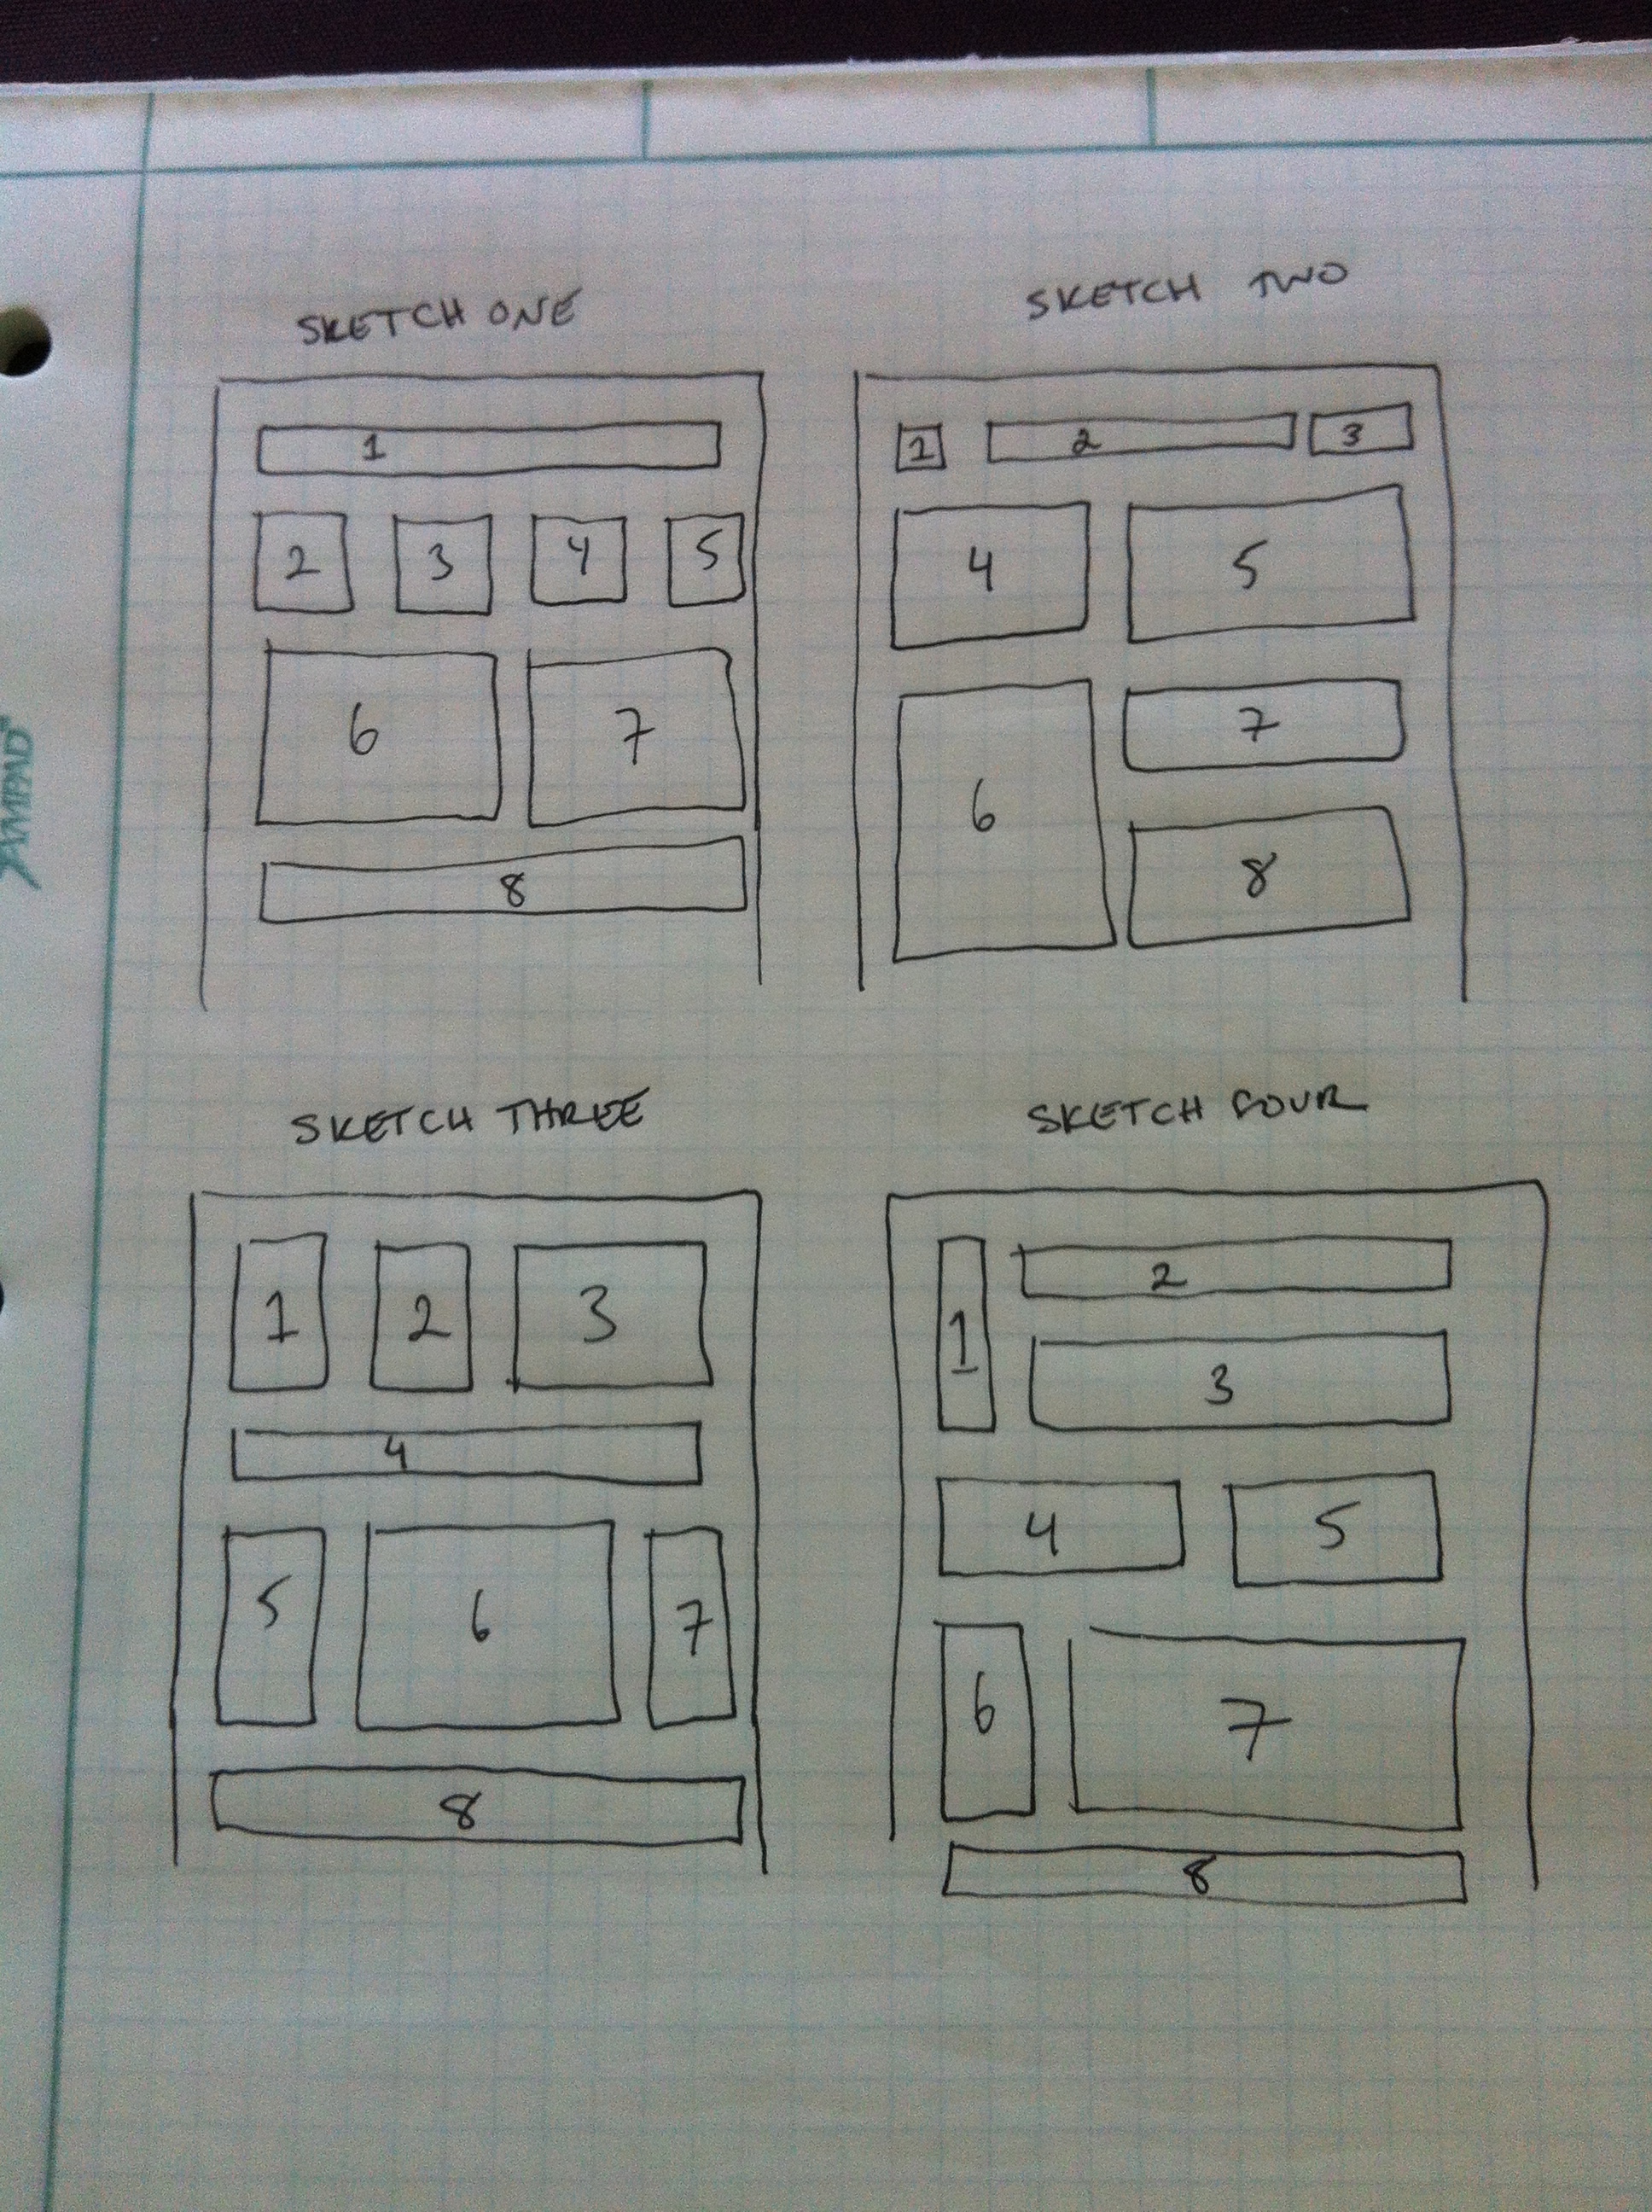 SKETCH ONE
1
2 3 4 5
6 7
8
SKETCH TWO
1 2 3
4 5
6 7
8
SKETCH THREE
1 2 3
4
5 6 7
8
SKETCH FOUR
1 2
3
4 5
6 7
8
AMPAD